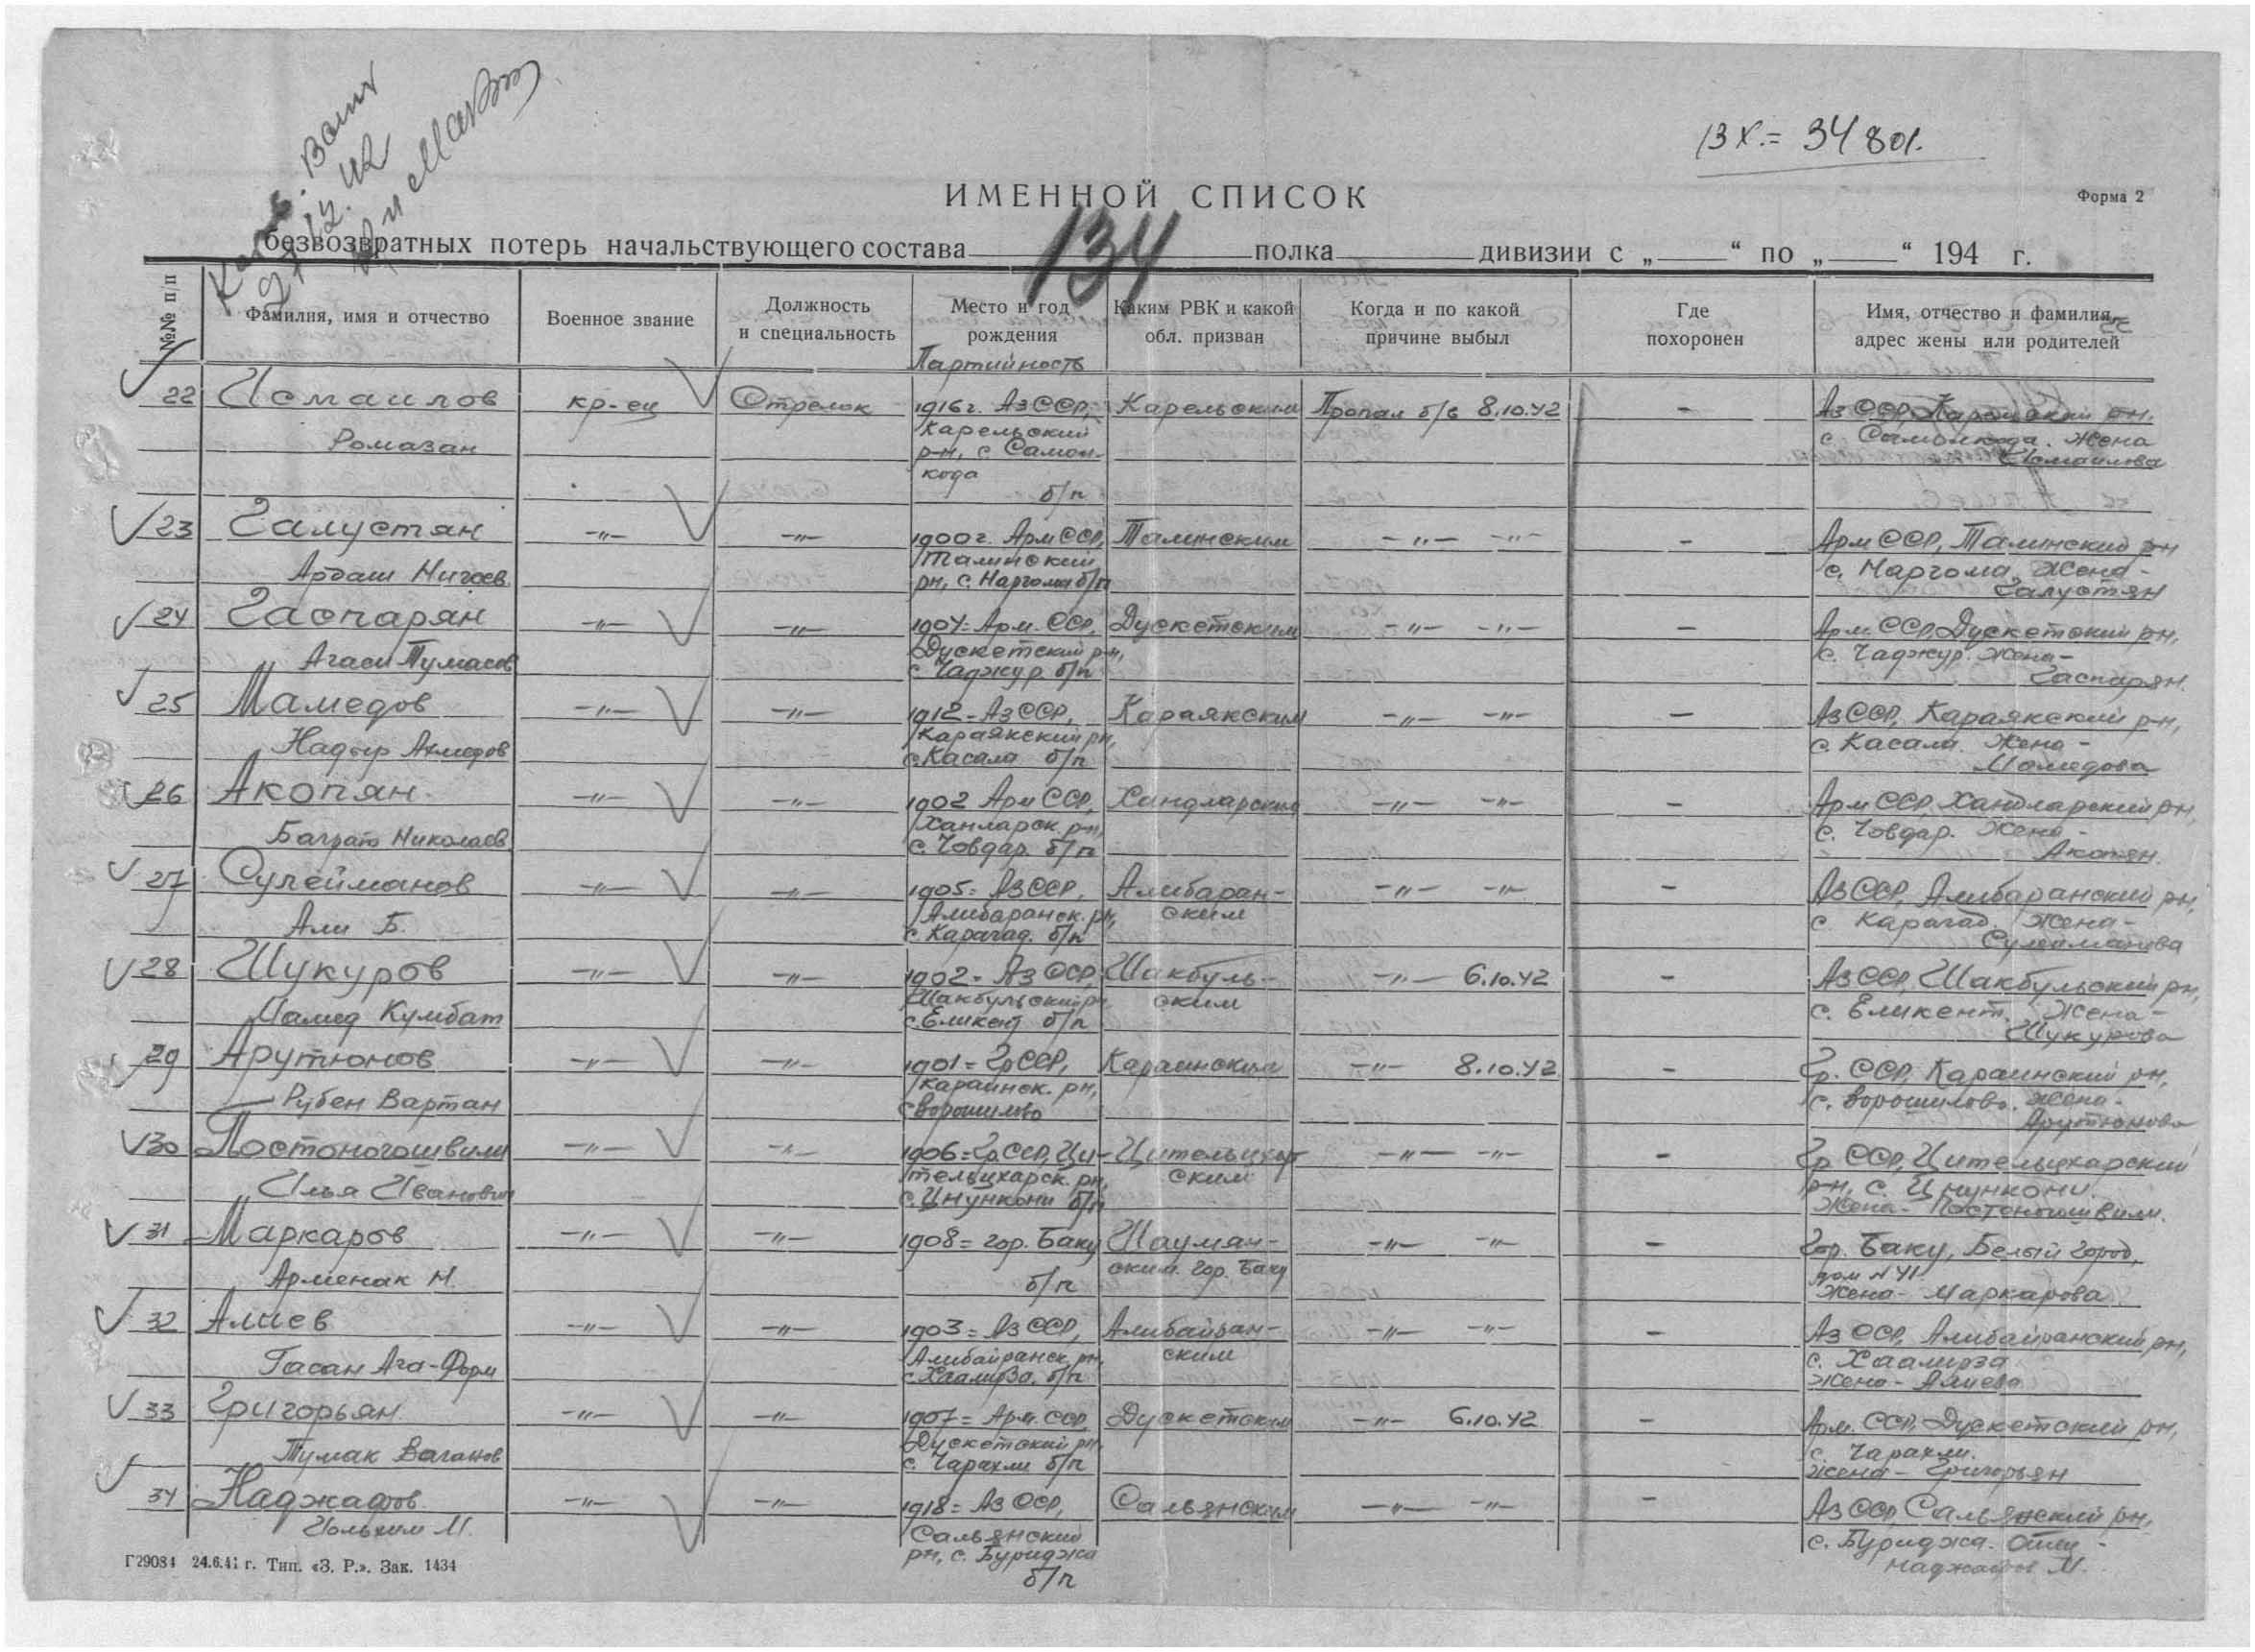 13 X.= 34801.
ИМЕННОЙ СПИСОК
Форма 2
безвозвратных потерь начальствующего состава полка дивизии с „ “ по „ “ 194 г.
134
№№ п/п
Фамилия, имя и отчество
Военное звание
Должность и специальность
Место и год рождения
Партийность
Каким РВК и какой обл. призван
Когда и по какой причине выбыл
Где похоронен
Имя, отчество и фамилия, адрес жены или родителей
22 Исмаилов кр-ец Стрелок 1916 г. АзССР, Карельским Пропал б/в 8.10.42 - Аз ССР, р-н.
Ромазан Карельский р-н, с Самолкода б/п с. Самолкода. Жена Исмаилова
23 Галустян -"- -"- 1900 г. Арм ССР, Талинским -"- -"- - Арм ССР, Талинский рн
Ардаш Талинский рн, с. Наргома б/п с. Наргома. Жена - Галустян
24 Гаспарян -"- -"- 1904= Арм. ССР, Дускетским -"- -"- - Арм. ССР, Дускетский рн,
Агаси Тумасов Дускетский р-н, с Чаджур б/п с. Чаджур. Жена - Гаспарян.
25 Мамедов -"- -"- 1912 - Аз ССР, Караякским -"- -"- - Аз ССР, Караякский р-н,
Надыр Ахмедов Караякский рн, с. Касала б/п с. Касала. Жена - Мамедова
26 Акопян -"- -"- 1902 Арм ССР, Хандларским -"- -"- - Арм ССР, Хандларский рн,
Баграт Николаев Ханларск. р-н, с. Човдар. б/п с. Човдар. Жена - Акопян.
27 Сулейманов -"- -"- 1905= Аз ССР, Алибаран- -"- -"- - Аз ССР, Алибаранский рн,
Али Б. Алибаранск. рн, с. Карагад. б/п ским с Карагад. Жена - Сулейманова
28 Шукуров -"- -"- 1902 - Аз ССР, Шакбуль- -"- 6.10.42 - Аз ССР, Шакбульский рн,
Мамед Кумбат Шакбульский рн с. Еликент б/п ским с. Еликент. Жена - Шукурова
29 Арутюнов -"- -"- 1901= Гр ССР, Караинским -"- 8.10.42 - Гр. ССР, Караинский рн,
Рубен Вартан Караинск. рн, с Ворошилово с. Ворошилово. Жена - Арутюнова
30 Постоногошвили -"- -"- 1906= Гр. ССР, Ци- Цительцхар- -"- -"- - Гр ССР, Цительцхарский
Илья Иванович тельцхарск. рн, с. Цнункони б/п ским р-н, с. Цнункони.
Жена - Постоногошвили.
31 Маркаров -"- -"- 1908= гор. Баку Шаумян- -"- -"- - Гор. Баку, Белый город,
Арменак Н. б/п ским. гор. Баку дом N 41
Жена - Маркарова
32 Алиев -"- -"- 1903= Аз ССР, Алибайран- -"- -"- - Аз ССР, Алибайранский рн,
Гасан Ага- Алибайранск. рн, с. Хаалирза. б/п ским с. Хаалирза
Жена - Алиева
33 Григорьян -"- -"- 1907= Арм. ССР Дускетским -"- 6.10.42 - Арм. ССР, Дускетский рн,
Тумак Ваганов Дускетский рн, с. Чарахли б/п с. Чарахли.
Жена - Григорьян
34 Наджафов -"- -"- 1918= Аз ССР, Сальянским -"- -"- - Аз ССР, Сальянский рн,
М. Сальянский рн, с. Буриджа б/п с. Буриджа. Отец - Наджафов М.
Г29084 24.6.41 г. Тип. «З. Р.». Зак. 1434